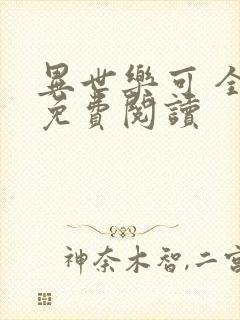 異世樂可 全
免費閱讀
神奈木智,二宮